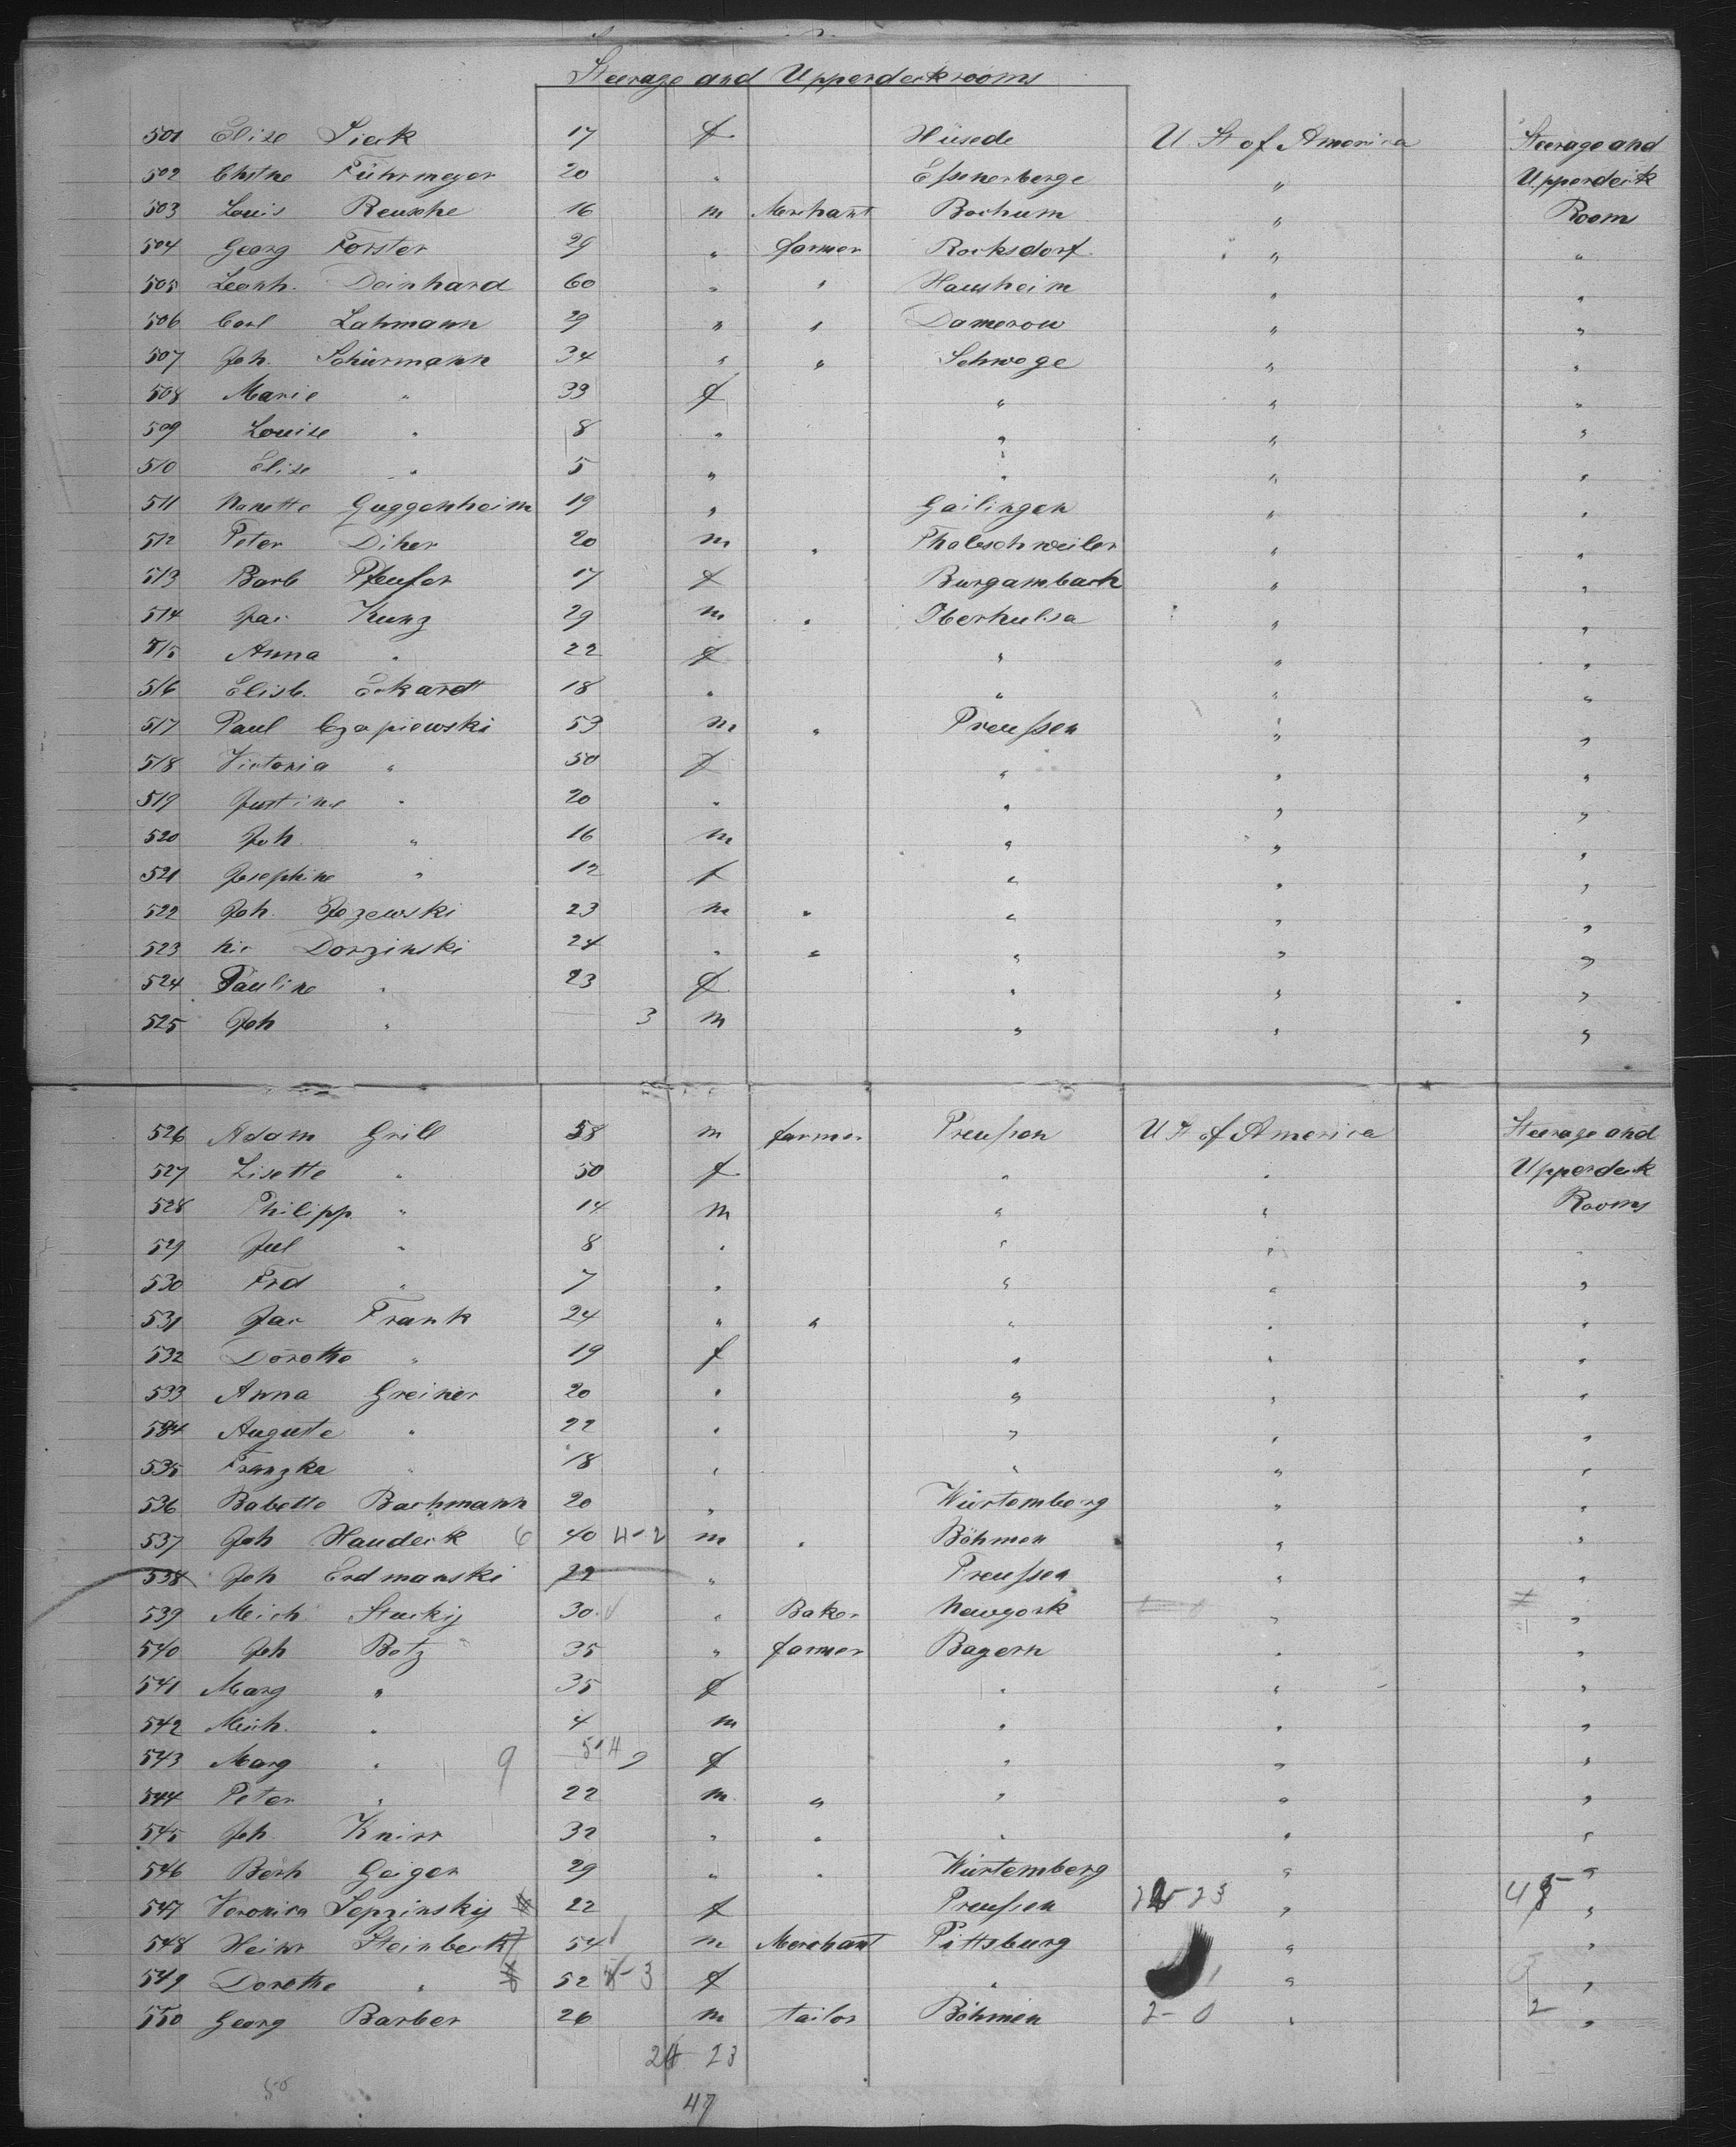 Steerage and Upperdeckrooms
501 Elise Siek 17 f Hüsede U. St of America Steerage and
502 Chstne Führmeyer 20 " Eßenerberge " Upperdeck
503 Louis Reusche 16 m Merchant Bochum " Room
504 Georg Förster 29 " farmer Rocksdorf " "
505 Leonh. Deinhard 60 " " Hausheim " "
506 Carl Lahmann 29 " " Damerow " "
507 Joh. Schürmann 34 " " Schwege " "
508 Marie " 33 f " " "
509 Louise " 8 " " " "
510 Elise " 5 " " " "
511 Nanette Guggenheim 19 " Gailingen " "
512 Peter Diker 20 m " Thaleschweiler " "
513 Barb Pfeufer 17 f Burgambach " "
514 Jac Kunz 29 m " Oberhulsa " "
515 Anna " 22 f " " "
516 Elisb. Eckardt 18 " " " "
517 Paul Czapiewski 53 m " Preußen " "
518 Victoria " 50 f " " "
519 Justine " 20 " " " "
520 Joh. " 16 m " " "
521 Josephine " 12 f " " "
522 Joh. Jezewski 23 m " " " "
523 Nic Dorzinski 24 " " " " "
524 Pauline " 23 f " " "
525 Joh " 3 m " " "
526 Adam Grill 58 m farmer Preußen U St of America Steerage and
527 Lisette " 50 f " " Upperdeck
528 Philipp " 14 m " " Rooms
529 Jul " 8 " " " "
530 Frd " 7 " " " "
531 Jac Frank 24 " " " " "
532 Dorothe " 19 f " " "
533 Anna Greiner 20 " " " "
534 Auguste " 22 " " " "
535 Franzka " 18 " " " "
536 Babette Bachmann 20 " Würtemberg " "
537 Joh Haudeck 6 40 4-2 m " Böhmen " "
538 Joh Erdmanski 22 " Preußen " "
539 Mich Stuckij 30 " Baker Newyork " "
540 Joh Botz 35 " farmer Bayern " "
541 Marg " 35 f " " "
542 Mich. " 4 m " " "
543 Marg " 9 9 f " " "
544 Peter " 22 m " " " "
545 Joh Knirr 32 " " " " "
546 Bernh Geiger 29 " " Würtemberg " "
547 Veronica Sepzinskij 22 f Preußen 23 " "
548 Heinr Steinbeck 54 m Merchant Pittsburg " "
549 Dorothe " 52 3 f " " "
550 Georg Barber 26 m tailor Böhmen 2-0 " 2 "
24 23
50
47